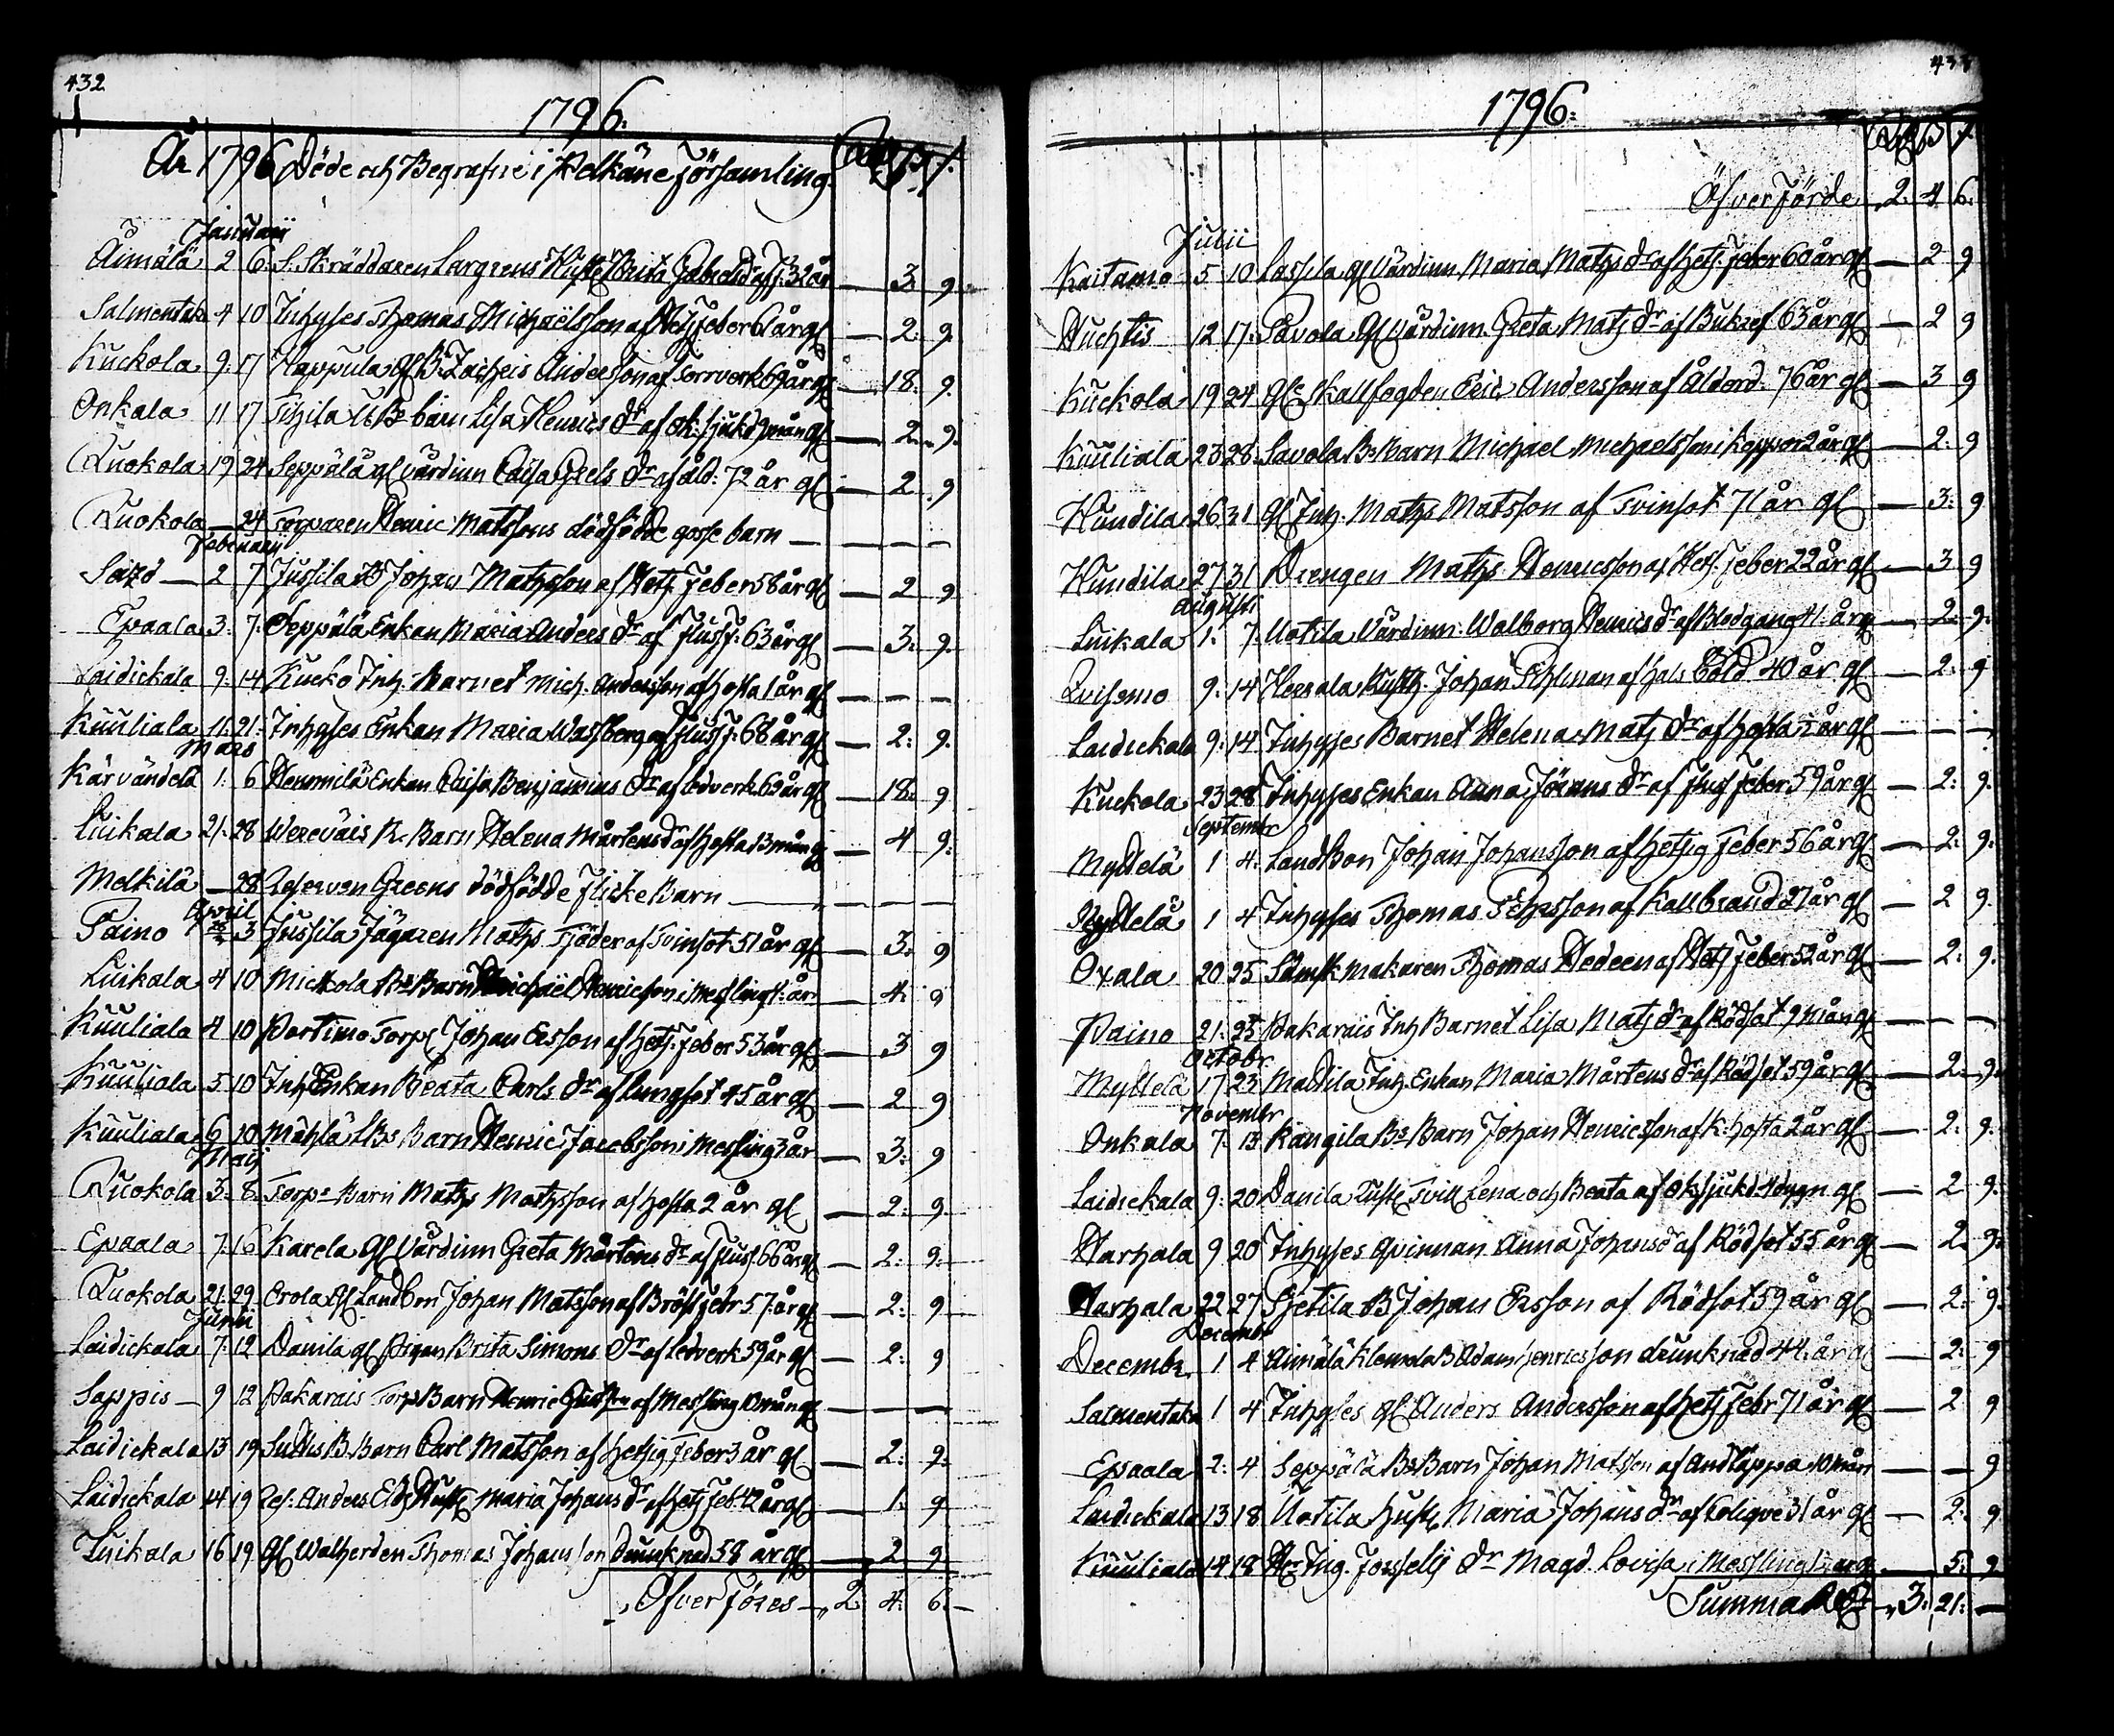 432
1796.
År 1796 Döde och Begrafne i Pelkäne Församling.
Januarii
Äimälä 2 6 S. Skräddaren Largrens Hust. Brita 32 år — 3 9
Salmentaka 4 10 Inhyses Thomas Michaëlsson af Hetz feber 62 år gl — 2. 9.
Kuckola 9. 17 Happula Anderson af 69 år gl — 18. 9
Onkala 11 17 barn Lisa Henrics dr af ok. sjukd 9 mån gl — 2. 9.
Ruokola 19 24 Seppälä gl Värdinn Caisa Greels dr af åld. 72 år gl — 2 9
Ruokola — 24 Torparen Henric Matssons dödfödde gosse barn — — — —
Februarii
2 7 Jussila Johan Mathsson af Hetz feber 58 år gl — 2 9
Epaala 3. 7. Seppälä Enkan Maria Anders dr af flussf. 63 år gl — 3. 9.
Laidickala 9. 14 Kucko Inh. Barnet Mich. Andersson af hosta 1 år gl — — —
Kuuliala 11. 21. Inhyses Enkan Maria Wassberg af flussf. 68 år gl — 2. 9.
Mars
Kärvändelä 1. 6 Hemmilä Enkan Caisa Benjamins dr af ledverk 62 år gl — 18. 9
Luikala 21. 28 Wereväis R. Barn Helena Mårtens dr af hosta 13 mån gl — 4 9.
Melkilä — 28 Reserven Greens dödfödde flicke Barn — — — —
April
Paino 3 Jussila Jägaren Maths Fjäder af Tvinsot 51 år gl — 3. 9
Luikala 4 10 Mickola Rs Barn Michaël Henricson i messling 4 år — 4. 9
Kuuliala 4 10 Portimo Torp. Johan Ersson af hetz. feber 53 år gl — 3 9
Kuuliala 5 10 Inh. Enkan Beata Carls dr af lungsot 45 år gl — 2 9
Kuuliala 6 10 Mähälä Bs Barn Henric Jacobsson i Messling 3 år — 3. 9
Maij
Ruokola 3. 8. Torps Barn Maths Mathsson af hosta 2 år gl — 2. 9.
Epaala 7. 16 Karela gl Värdinn Greta Mårtens dr af flussf. 66 år gl — 2. 9.
Ruokola 21. 29 Erola gl Landbon Johan Matsson af Bröst febr 57. år gl — 2. 9
Junii
Laidickala 7. 12 Danila gl Pigan Brita Simons dr af Ledverk 59 år gl — 2. 9
Sappis — 9 12 Pakarais Torps Barn Henric af Messling 10 mån gl — — —
Laidickala 13 19 B. Barn Carl Matsson af hetsig feber 3 år gl — 2. 9.
Laidickala 14 19 Res. Anders Maria Johans dr af hetz feb. 42 år gl — 1. 9
Luikala 16 19 gl Thomas Johansson drunknad 58 år gl — 2 9
Öfverföres — 2. 4. 6. —
433
1796.
Öfverförde 2. 4 6.
Julii
Kaitamo 5 10 Lassila gl Värdinn Maria Maths dr af hetz. feber 60 år gl — 2 9
Huchtis 12 17. Savola gl Värdinn Greta Mats dr af Bukref 63 år gl — 2 9
Kuckola 19 24 gl Skallfogden Eric Andersson af ålderd. 76 år gl — 3 9
Kuuliala 23 28. Savola Bs Barn Michael Michaelsson i koppor 2 år gl — 2. 9
Kundila 26 31 gl Inh. Maths Matsson af Tvinsot 71 år gl — 3. 9
Kundila 27 31 Drengen Maths Henricsson af Hetz. feber 22 år gl — 3 9
Augusti
Luikala 1. 7. Uotila Värdinn Walborg Henrics dr af Blodgang 41. år gl — 2. 9.
9. 14 Johan af hals 40 år gl — 2. 9
Laidickala 9. 14 Inhyses Barnet Helena Mats dr af hosta 2 år gl — — —
Kuckola 23 28 Inhyses Enkan Anna Jörans dr af fluss feber 59 år gl — 2. 9.
Septembr
Myttelä 1 4. Landbon Johan Johansson af hetsig feber 56 år gl — 2. 9.
Myttelä 1 4 Inhyses Thomas af Kallbrand 27 år gl — 2 9.
20 25 makaren Thomas Hedeen af Hetz feber 52 år gl — 2. 9.
Paino 21. 25 Pakarais Inh Barnet Lisa Mats dr af Rödsot 9 mån gl — — —
Octobr
Myttelä 17 23 Mattila Inh. Enkan Maria Mårtens dr af Rödsot 59 år gl — 2. 9.
Novembr
Onkala 7. 13 Kangila Bs Barn Johan Henricsson af K. hosta 2 år gl — 2. 9.
Laidickala 9. 20 Danila Tvill Lena och Beata af ok. sjukd. 4 dygn gl — 2 9.
Harhala 9 20 Inhyses Qvinnan Anna Johans dr af Rödsot 55 år gl — 2. 9.
Harhala 22 27 B Johan Ersson af Rödsot 59 år gl — 2. 9.
Decembr
Decembr. 1 4 Äimälä Klemola B Adam Henricsson drunknad 44. år gl — 2. 9
Salmentaka 1 4 Inhyses gl Anders Andersson af hetz febr 71 år gl — 2 9
Epaala 2. 4 Seppälä Bs Barn Johan Matsson af Andtäppa 10 mån — — 9
Laidickala 13 18 Uotila hust. Maria Johans dr af Coliqve 31 år gl — 2. 9
Kuuliala 14 18 Hr Ing. dr Magd. Lovisa i Messling år gl — 5. 9
Summa — 3. 21. —